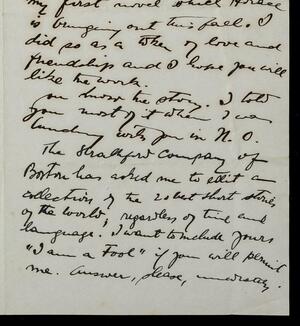 my first novel which Horace
is bringing out this fall. I
did so as a token of love and
friendship and I hope you will
like the work.
You know the story. I told
you most of it when I was
bunking with you in N.O.
The Stratford Company of
Boston has asked me to edit an
collection of the 20 best short stories
of the world, regardless of time and
language. I want to include yours
"I am a Fool" if you will permit
me. Answer, please,